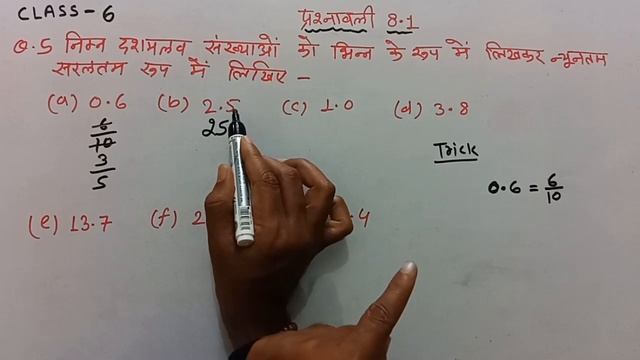 CLASS-6 प्रश्नावली 8.1
Q.5 निम्न दशमलव संख्याओं को भिन्न के रूप में लिखकर न्यूनतम
सरलतम रूप में लिखिए -
(a) 0.6 (b) 2.5 (c) 1.0 (d) 3.8
6
10
3
5
25
Trick
0.6 = 6/10
(e) 13.7 (f) 2 .4